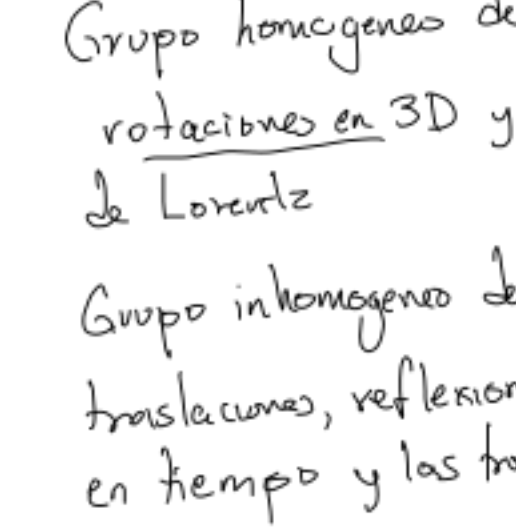 Grupo homogeneo de
rotaciones en 3D y
de Lorentz
Grupo inhomogeneo de
traslaciones, reflexion
en tiempo y las tra